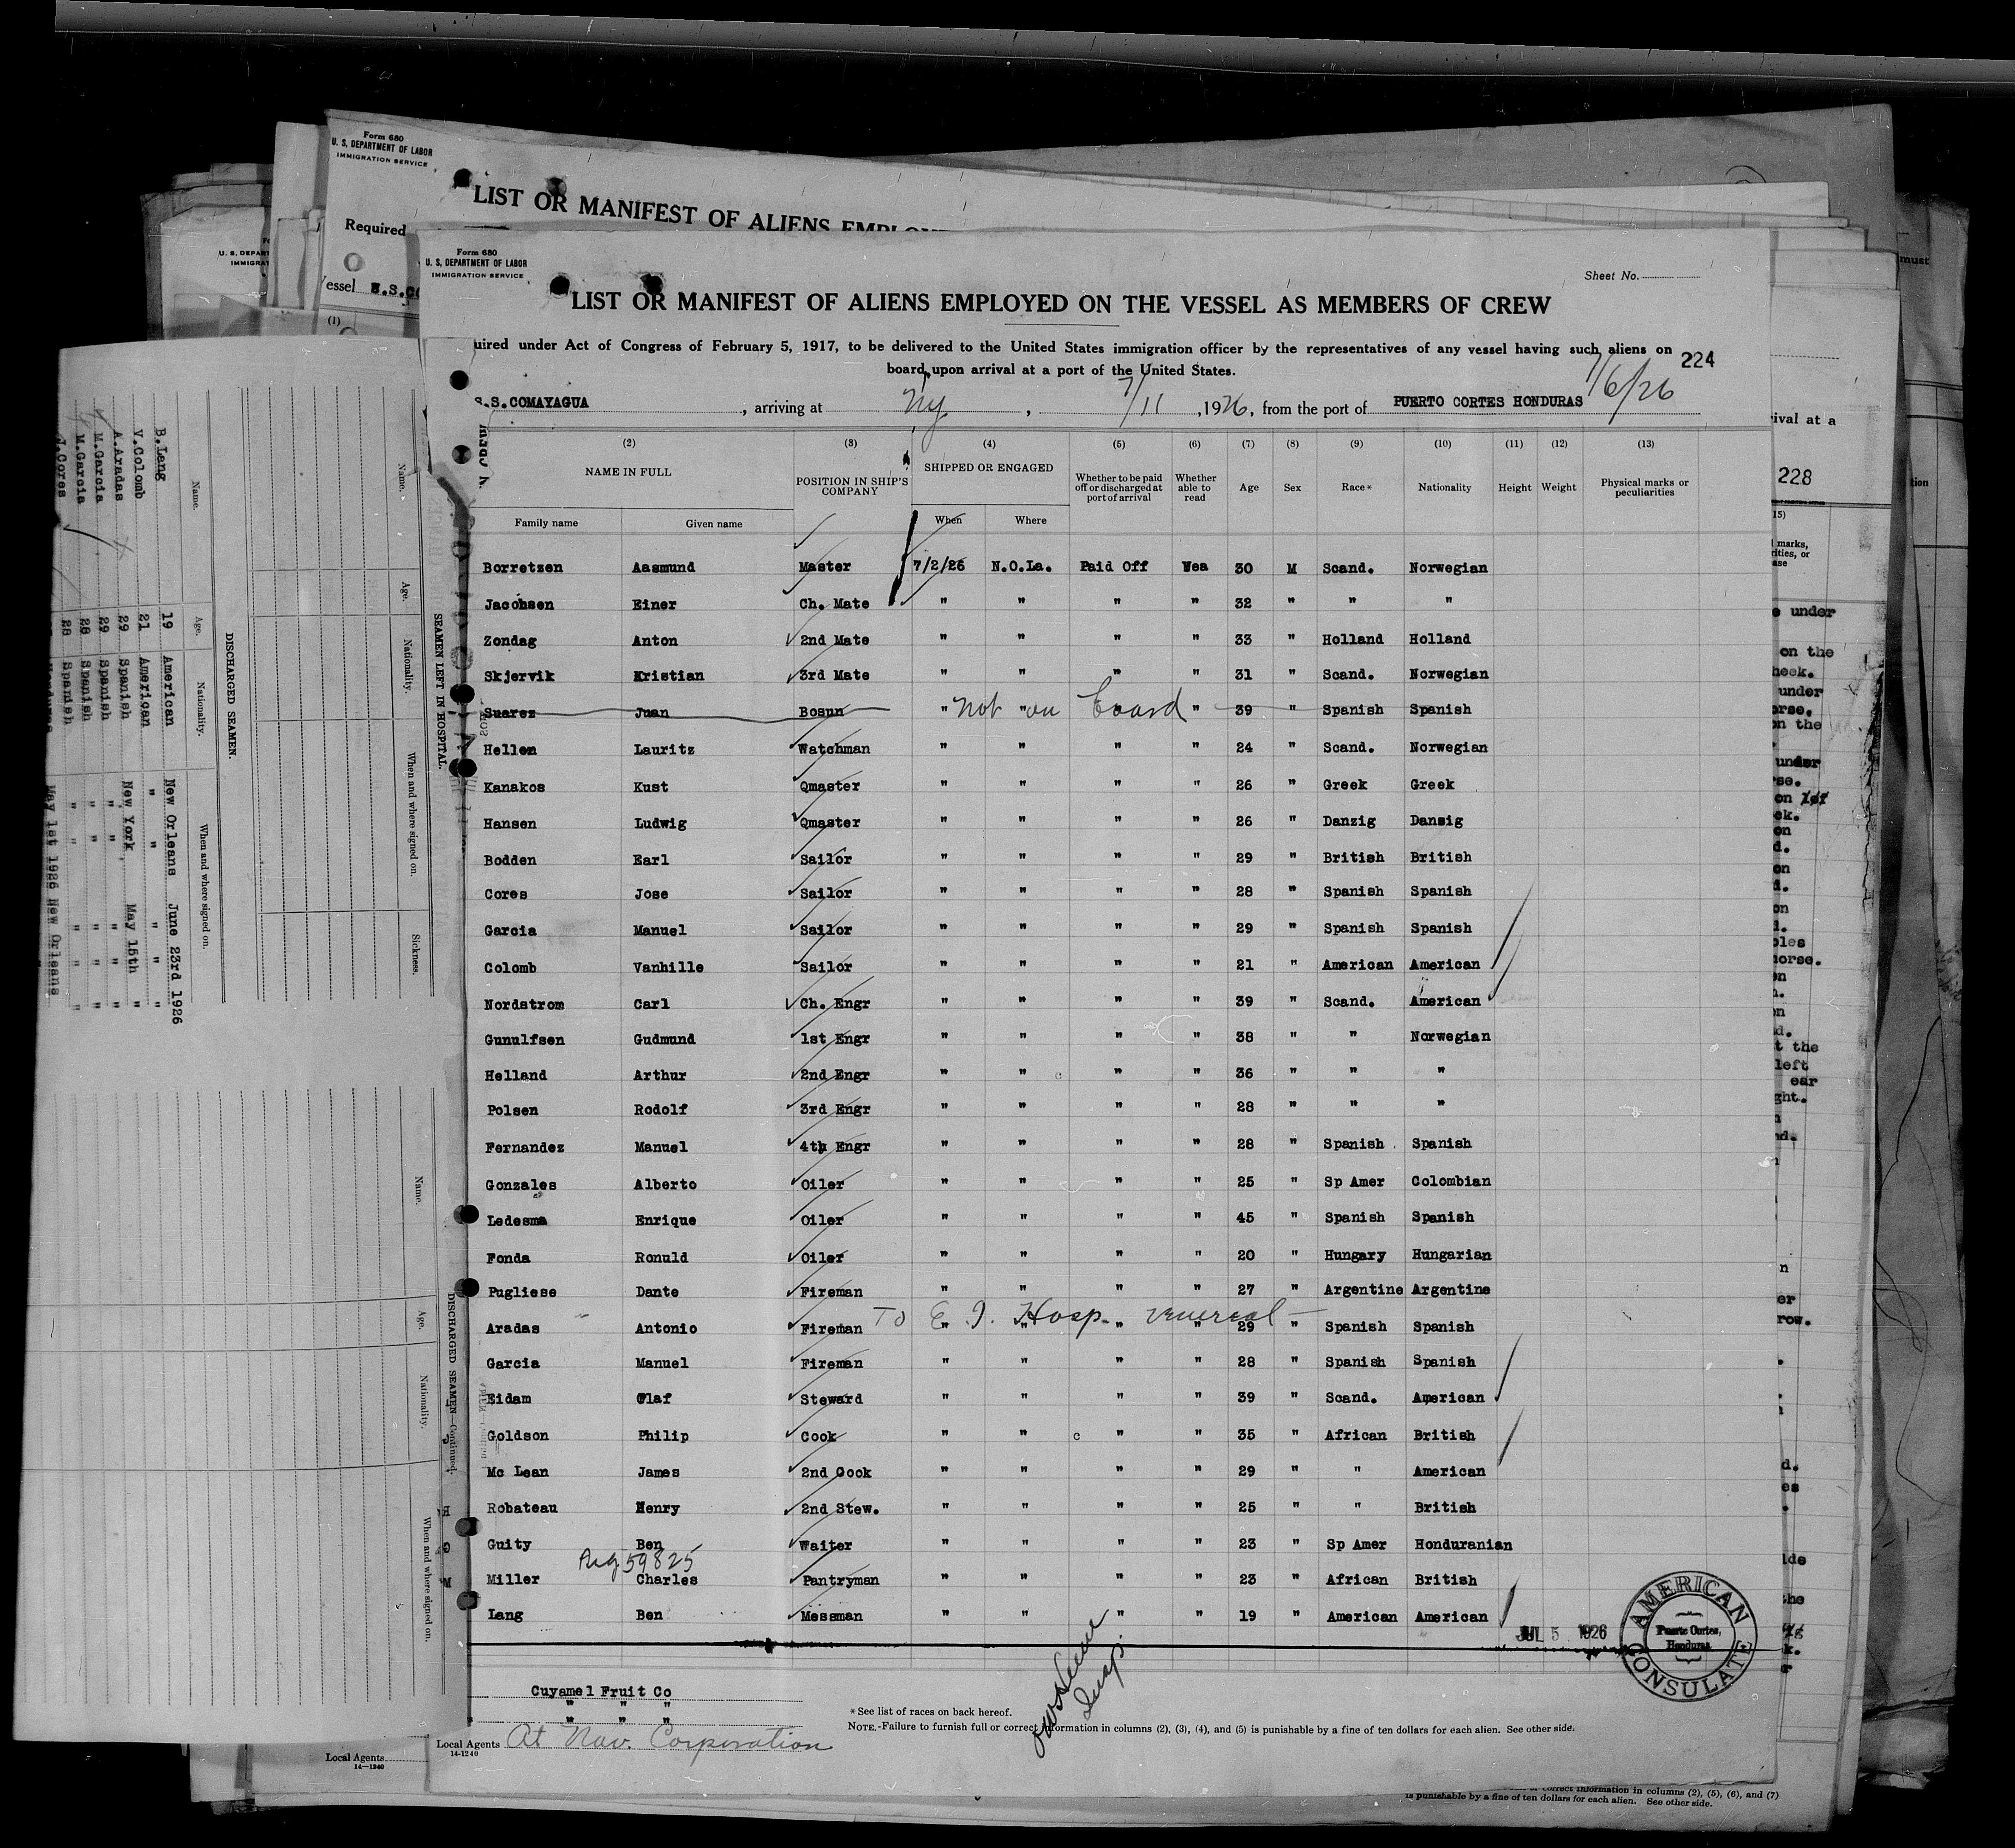 Form 680
U. S. DEPARTMENT OF LABOR
IMMIGRATION SERVICE
LIST OR MANIFEST OF ALIENS
Required
Vessel
(1)
Form 680
U. S. DEPARTMENT OF LABOR
IMMIGRATION SERVICE
Sheet No.
LIST OR MANIFEST OF ALIENS EMPLOYED ON THE VESSEL AS MEMBERS OF CREW
uired under Act of Congress of February 5, 1917, to be delivered to the United States immigration officer by the representatives of any vessel having such aliens on
board upon arrival at a port of the United States.
224
S.S.COMAYAGUA, arriving at Ny, 7/11, 1926, from the port of PUERTO CORTES HONDURAS 7/6/26
(2) (3) (4) (5) (6) (7) (8) (9) (10) (11) (12) (13)
NAME IN FULL POSITION IN SHIP'S COMPANY SHIPPED OR ENGAGED Whether to be paid off or discharged at port of arrival Whether able to read Age Sex Race* Nationality Height Weight Physical marks or peculiarities
Family name Given name When Where
Borretzen Aasmund Master 7/2/26 N.O.La. Paid Off Yes 30 M Scand. Norwegian
Jacobsen Einer Ch. Mate " " " " 32 " " "
Zondag Anton 2nd Mate " " " " 33 " Holland Holland
Skjervik Kristian 3rd Mate " " " " 31 " Scand. Norwegian
Suarez Juan Bosun " " " 39 " Spanish Spanish
not on board
Hellen Lauritz Watchman " " " " 24 " Scand. Norwegian
Kanakos Kust Qmaster " " " " 26 " Greek Greek
Hansen Ludwig Qmaster " " " " 26 " Danzig Danzig
Bodden Earl Sailor " " " " 29 " British British
Cores Jose Sailor " " " " 28 " Spanish Spanish
Garcia Manuel Sailor " " " " 29 " Spanish Spanish
Colomb Vanhille Sailor " " " " 21 " American American
Nordstrom Carl Ch. Engr " " " " 39 " Scand. American
Gunulfsen Gudmund 1st Engr " " " " 38 " " Norwegian
Helland Arthur 2nd Engr " " " " 36 " " "
Polsen Rodolf 3rd Engr " " " " 28 " " "
Fernandez Manuel 4th Engr " " " " 28 " Spanish Spanish
Gonzales Alberto Oiler " " " " 25 " Sp Amer Colombian
Ledesma Enrique Oiler " " " " 45 " Spanish Spanish
Fonda Ronuld Oiler " " " " 20 " Hungary Hungarian
Pugliese Dante Fireman " " " " 27 " Argentine Argentine
To E. I. Hosp. venereal
Aradas Antonio Fireman " " " " 29 " Spanish Spanish
Garcia Manuel Fireman " " " " 28 " Spanish Spanish
Eidam Olaf Steward " " " " 39 " Scand. American
Goldson Philip Cook " " " " 35 " African British
Mc Lean James 2nd Cook " " " " 29 " " American
Robateau Henry 2nd Stew. " " " " 25 " " British
Guity Ben Waiter " " " " 23 " Sp Amer Honduranian
59825
Miller Charles Pantryman " " " " 23 " African British
Lang Ben Messman " " " " 19 " American American
JUL 5 1926
AMERICAN CONSULATE
Puerto Cortes,
Honduras
Cuyamel Fruit Co
" " "
" " "
Local Agents At Nav. Corporation
14-1240
*See list of races on back hereof.
NOTE.-Failure to furnish full or correct information in columns (2), (3), (4), and (5) is punishable by a fine of ten dollars for each alien. See other side.
Insp.
Local Agents
14-1240
is punishable by a fine of ten dollars for each alien. See other side.
SEAMEN LEFT IN HOSPITAL.
Name. Age. Nationality. When and where signed on. Sickness.
DISCHARGED SEAMEN.
Name. Age. Nationality. When and where signed on.
B.Lang 19 American New Orleans June 23rd 1926
V.Colomb 21 American " " "
A.Aradas 29 Spanish New York, May 15th "
M.Garcia 29 Spanish " " "
M.Garcia 28 Spanish " " "
J.Cores 28 Spanish " " "
May 1st 1926 New Orleans
DISCHARGED SEAMEN—Continued.
Name. Age. Nationality. When and where signed on.
rival at a
228